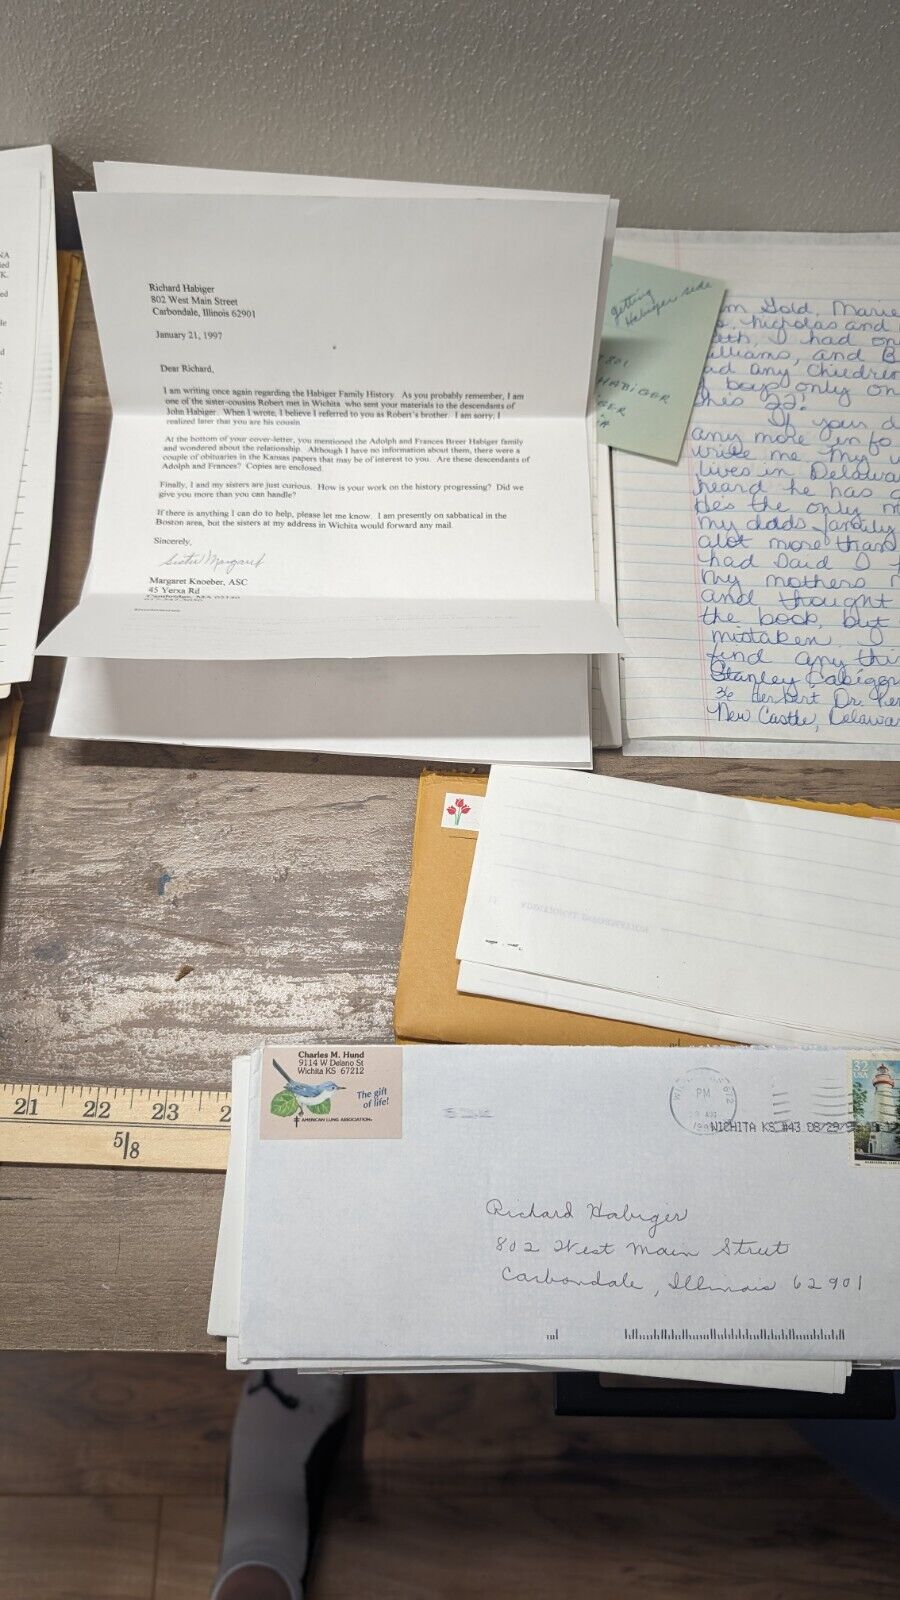 NA
ied
K.
ed
le
d
Richard Habiger
802 West Main Street
Carbondale, Illinois 62901
January 21, 1997
Dear Richard,
I am writing once again regarding the Habiger Family History. As you probably remember, I am
one of the sister-cousins Robert met in Wichita who sent your materials to the descendants of
John Habiger. When I wrote, I believe I referred to you as Robert's brother. I am sorry; I
realized later that you are his cousin.
At the bottom of your cover-letter, you mentioned the Adolph and Frances Breer Habiger family
and wondered about the relationship. Although I have no information about them, there were a
couple of obituaries in the Kansas papers that may be of interest to you. Are these descendants of
Adolph and Frances? Copies are enclosed.
Finally, I and my sisters are just curious. How is your work on the history progressing? Did we
give you more than you can handle?
If there is anything I can do to help, please let me know. I am presently on sabbatical in the
Boston area, but the sisters at my address in Wichita would forward any mail.
Sincerely,
Sister Margaret
Margaret Knoeber, ASC
45 Yerxa Rd
Cambridge, MA 02140
getting
Habiger side
1801
HABIGER
GER
IA
m Gold, Marie
s, Nicholas and
eth, I had on
illiams, and B
ad any children
boys only on
this 22!
If your d
any more info
write me my
lives in Delawa
heard he has a
He's the only m
my dads family
alot more than
had said I
my mothers
and thought
the book, but
mistaken. I
find any thi
Stanley Cabiger
36 Herbert Dr. Pe
New Castle, Delawar
Charles M. Hund
9114 W Delano St
Wichita KS 67212
The gift
of life!
AMERICAN LUNG ASSOCIATION
PM
672
WICHITA KS #43 08/29/9
32
USA
Richard Habiger
802 West Main Street
Carbondale, Illinois 62901
21 22 23
5/8